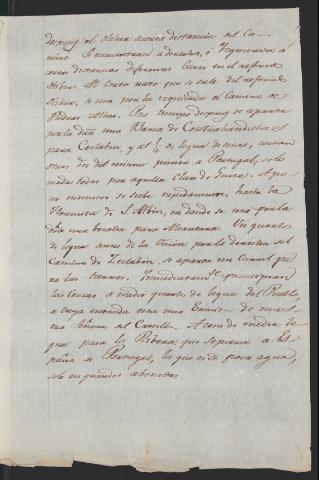 despues el otro a corta distancia del Ca-
mino. Se encuentran a derecha, è Yzquierda á
cortas distancias diferentes Casas en el referido
Al Corto rato que se sale del referido
se une por la izquierda el Camino de
Piedras Albas. Poco tiempo despues se aparta
por la dra. una Vereda de Contrabandistas
para Ceclabin, y al ¼ de legua de estas, cruzan
otras dos del mismo punto a Portugal, solo
usadas todas por aquella clase de Gente. A po-
cos minutos se sube rapidamente, hasta la
Hermita de S. Albin, en donde se une por la
dra una vereda para Alcantara. Un quarto
de legua antes de la Union por la derecha del
Camino de Zeclabin se aparta un Carril pa-
ra las tierras. Inmediatamte. principian
las Cercas, a medio quarto de legua del Pueblo,
a cuya entrada esta una Ermita de nues-
tra Señora del Castillo. A cosa de media le-
gua pasa la Ribera que separa a Es-
paña de Portugal, la que es de poca agua,
solo en grandes abenidas